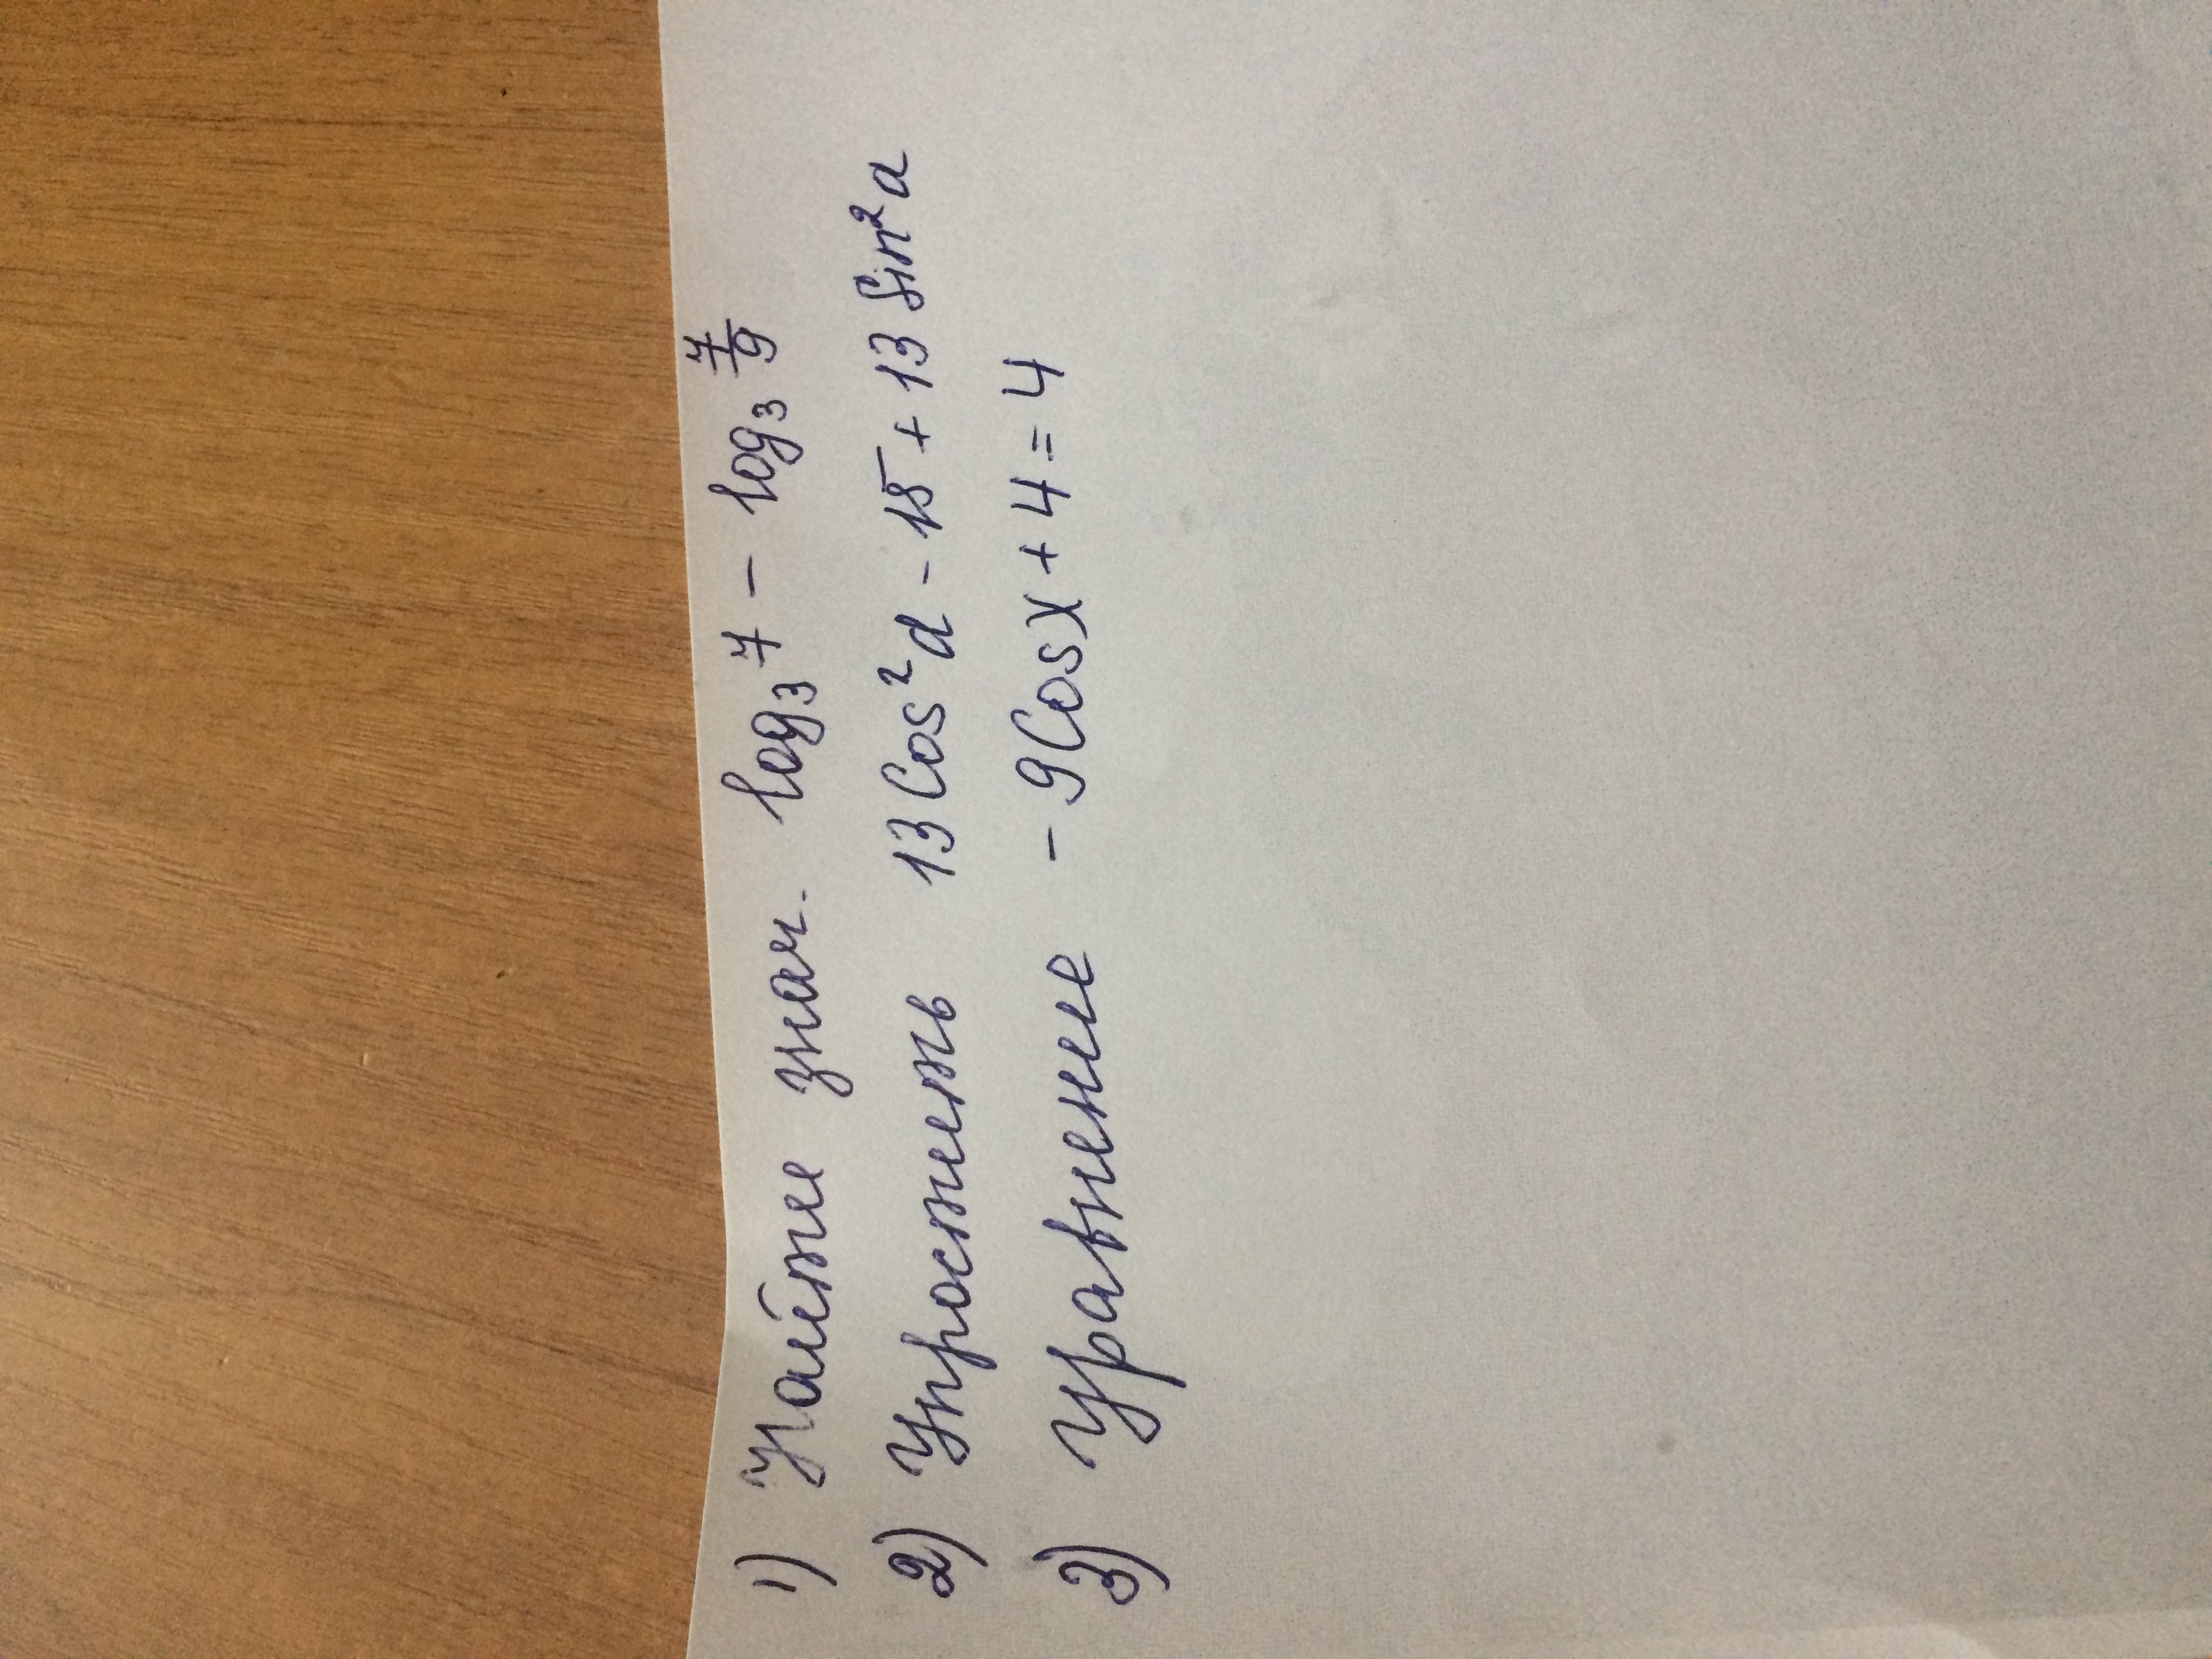 1) Найти знач. log₃7 - log₃ 7/9
2) Упростить 13 Cos²α - 15 + 13 Sin²α
3) Уравнение - 9Cosx + 4 = 4